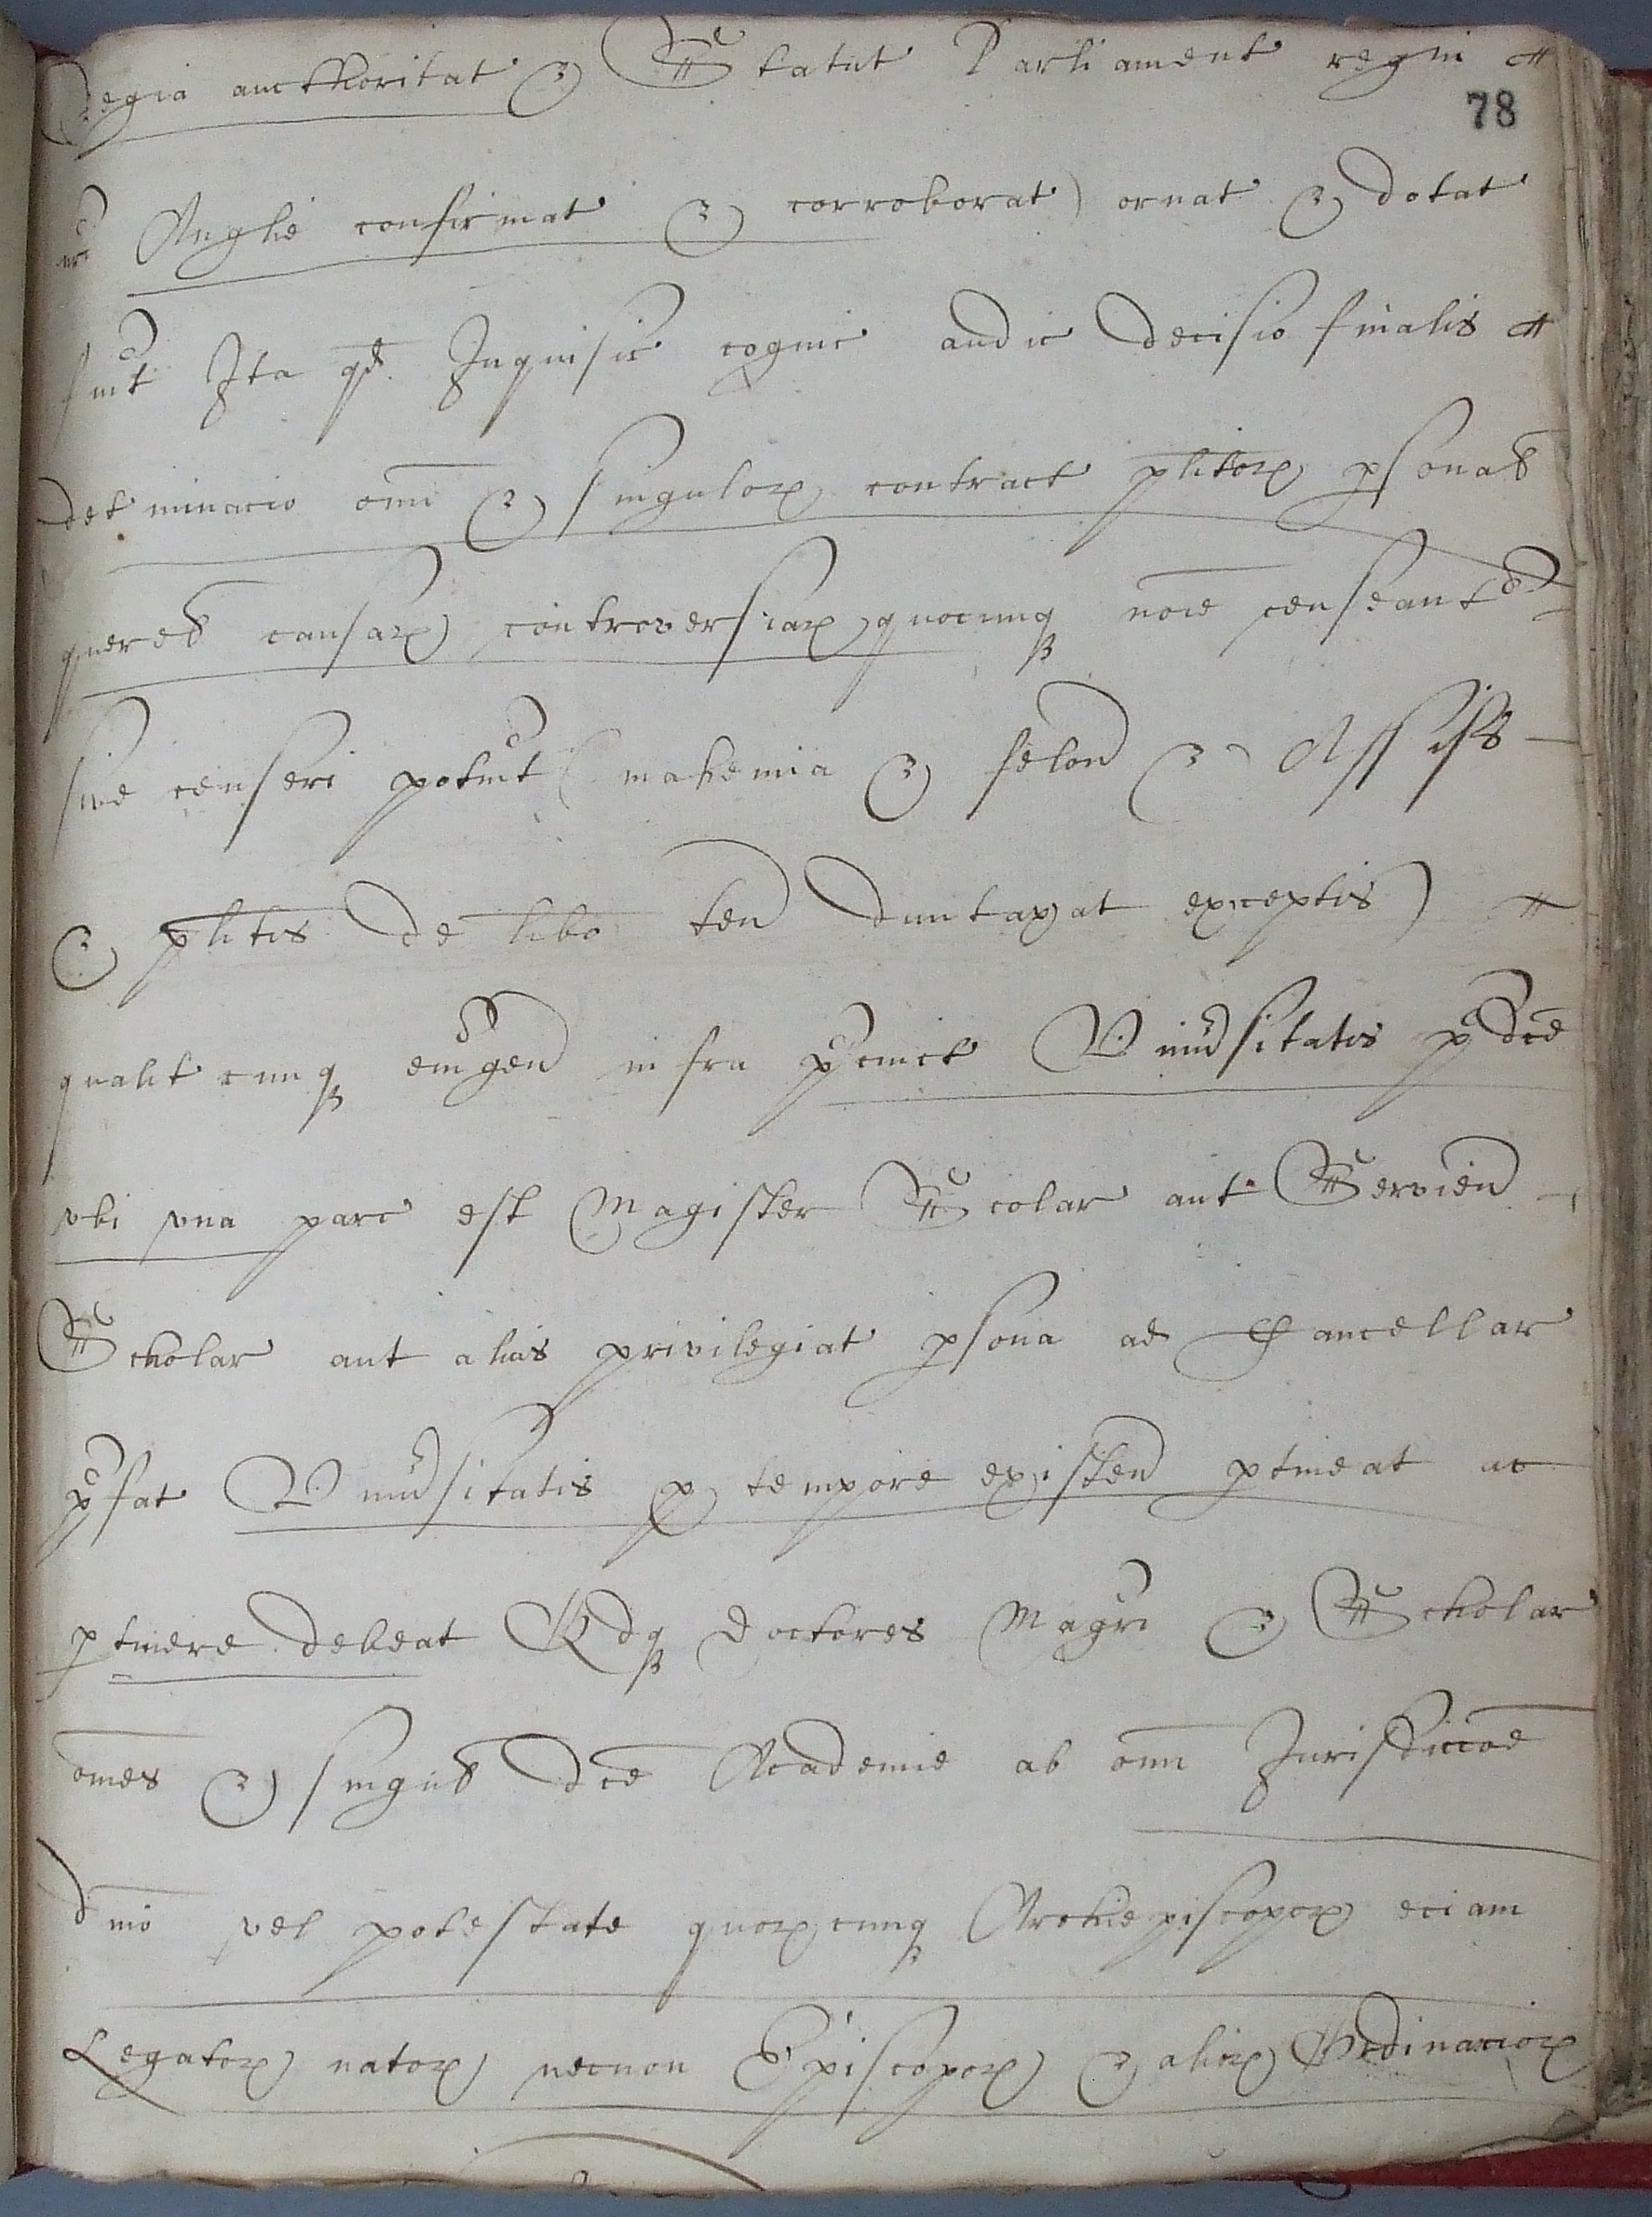 Regia aucthoritat & Statut Parliament regni
78
nri Anglie confirmat & corroborat) ornat & dotat
sint Ita qd Inquisic cognic audic decisio finalis
detminacio omi & singulor contract plitor psonal
querel causar controversiar quocunq noie censeantr
sive censeri potint (mahemia & felon & Assisis
& plitis de libo ten duntaxat exceptis)
qualitcunq emgen infra pcinct Univsitatis pdce
vbi vna pars est Magister Scolar aut Servien
Scholar aut alias privilegiat psona ad Cancellar
pfat Univsitatis p tempore existen ptineat ac
ptinere debeat Qdq doctores Magri & Scholar
omes & singul dce Academie ab omi Jurisdiccoe
dnio vel potestate quorcunq Archiepiscopor eciam
Legator nator necnon Episcopor & alior Ordinarior